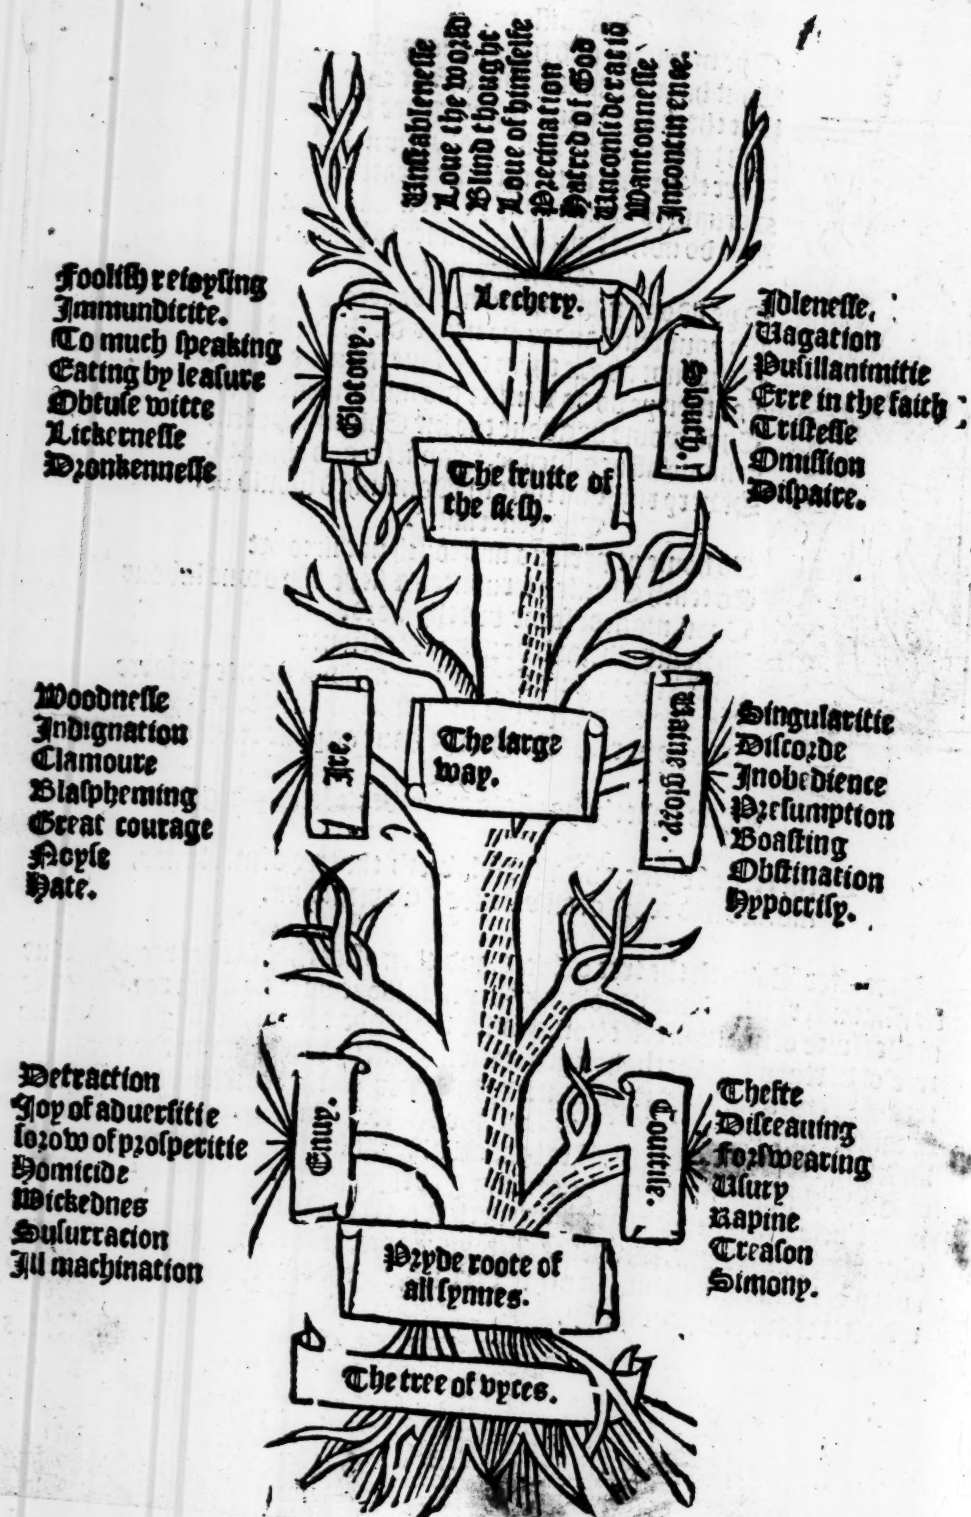 Unstablenesse
Loue the world
Blind thought
Loue of himselfe
Precination
Hatred of God
Unconsideratiō
Wantonnesse
Incontinence.
Lechery.
Foolish reioysing
Immundicite.
To much speaking
Eating by leasure
Obtuse witte
Lickernesse
Dronkennesse
Glotony.
Slouth.
Idlenesse.
Uagation
Pusillanimitie
Erre in the faith
Tristesse
Omission
Dispaire.
The fruite of
the flesh.
Woodnesse
Indignation
Clamoure
Blaspheming
Great courage
Noyse
Hate.
Ire.
The large
way.
Uaine glory.
Singularitie
Discorde
Inobedience
Presumption
Boasting
Obstination
Hypocrisy.
Detraction
Ioy of aduersitie
sorow of prosperitie
Homicide
Wickednes
Susurracion
Ill machination
Enuy.
Couitise.
Thefte
Disceauing
Forswearing
Usury
Rapine
Treason
Simony.
Pryde roote of
all synnes.
The tree of vyces.